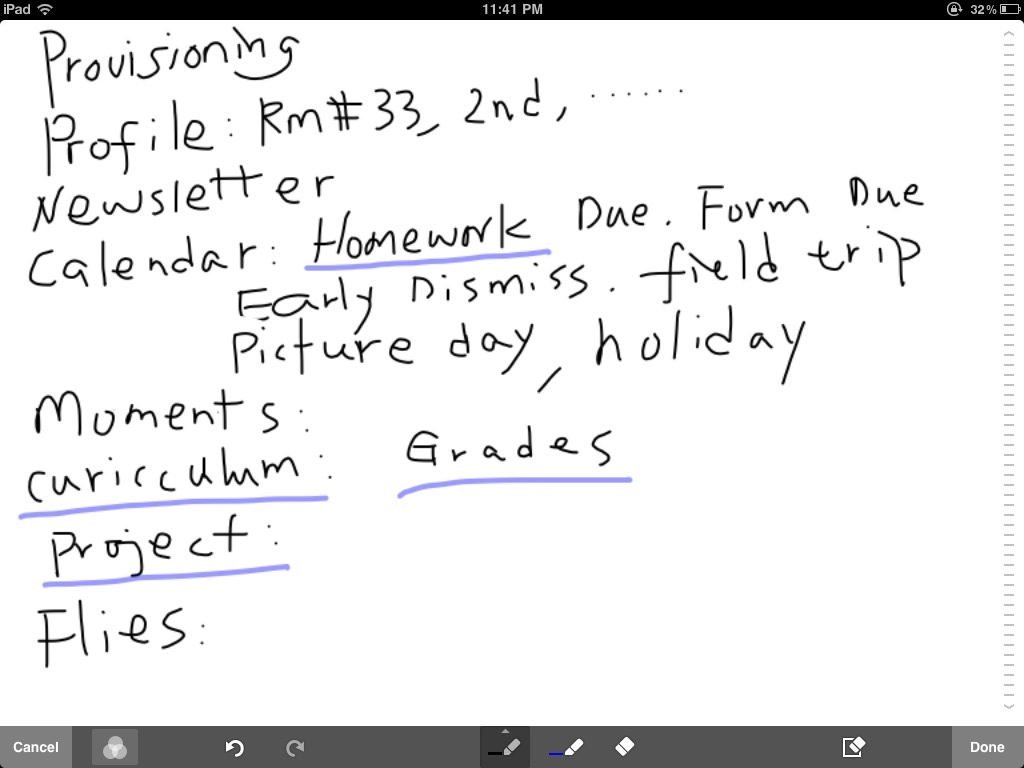 iPad 11:41 PM 32%
Provisioning
Profile: Rm#33, 2nd, ......
Newsletter
Calendar: Homework Due. Form Due
Early Dismiss. field trip
Picture day, holiday
Moments:
curicculum: Grades
project:
Flies:
Cancel Done